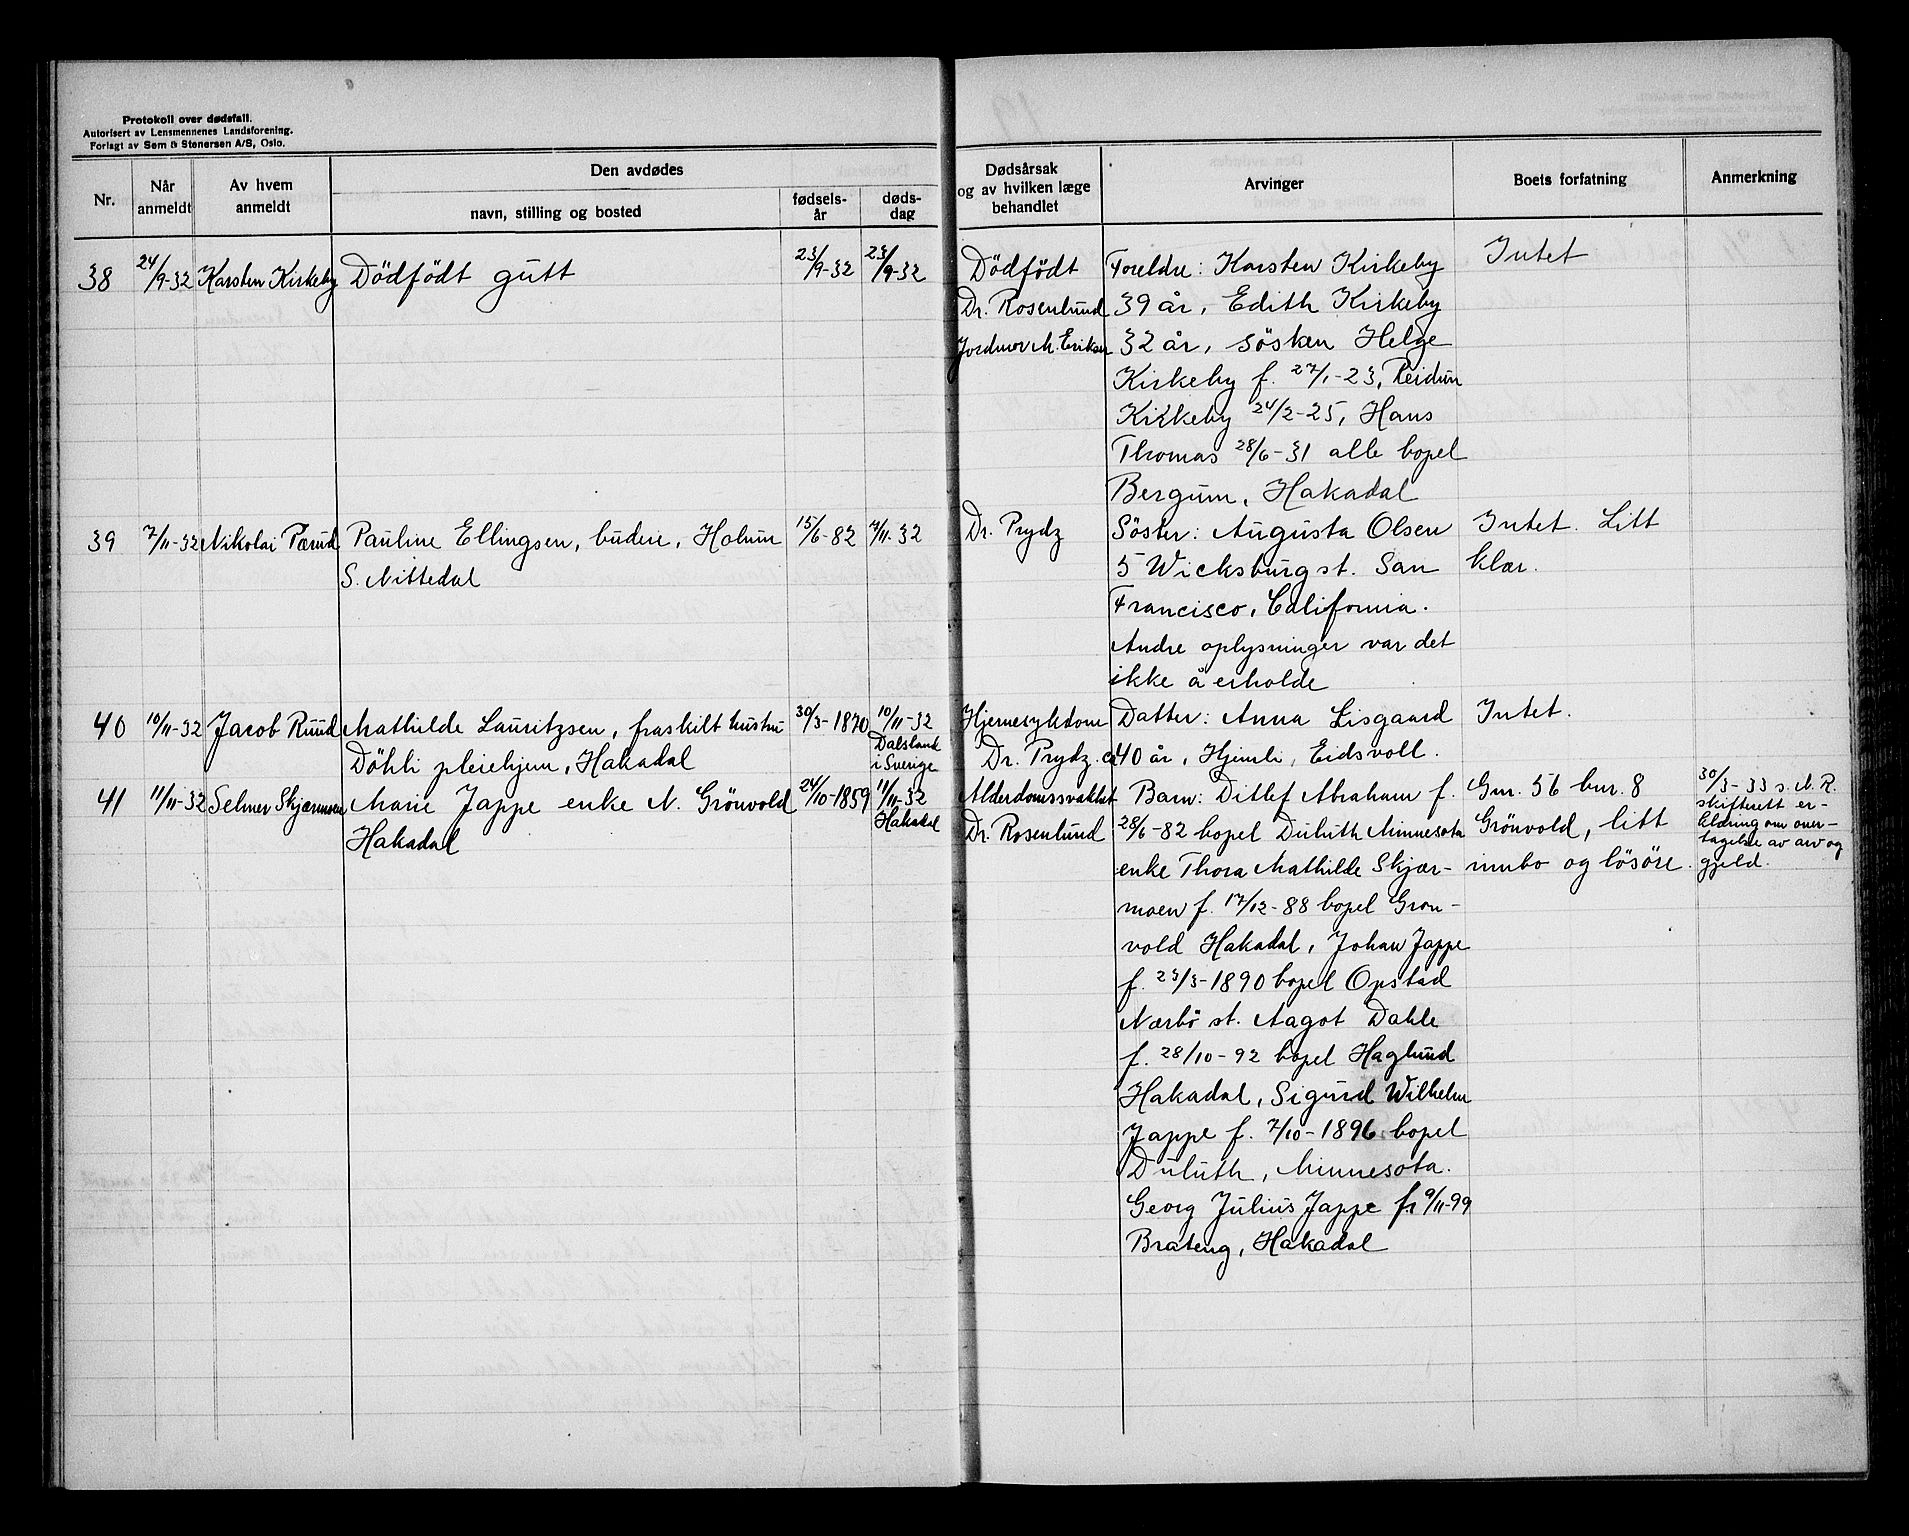 Protokoll over dødsfall.
Autorisert av Lensmennenes Landsforening.
Forlagt av Sem & Stenersen A/S, Oslo.
Nr.
Når anmeldt
Av hvem anmeldt
Den avdødes
navn, stilling og bosted
fødsels-år
døds-dag
Dødsårsak
og av hvilken læge
behandlet
Arvinger
Boets forfatning
Anmerkning
38
24/9-32
Karsten Kirkeby
Dödfödt gutt
23/9-32
23/9-32
Dödfödt
Dr. Rosenlund
Jordmor M. Eriksen
Foreldre: Karsten Kirkeby
39 år, Edith Kirkeby
32 år, søsken Helge
Kirkeby f. 27/1-23, Reidun
Kirkeby 24/2-25, Hans
Thomas 28/6-31 alle bopel
Bergum, Hakadal
Intet
39
7/11-32
Nikolai Pærud
Pauline Ellingsen, budeie, Holum
S. Nittedal
15/6-82
7/11.32
Dr. Prydz
Söster: Augusta Olsen
5 Wicksburg st. San
Francisco, California.
Andre oplysninger var det
ikke å erholde
Intet. Litt
klær.
40
10/11-32
Jacob Ruud
Mathilde Lauritzsen, fraskilt hustru
Döhli pleiehjem, Hakadal
30/3-1870
10/11-32
Dalsland
i Sverige
Hjernesykdom
Dr. Prydz. ca
Datter: Anna Lisgaard
40 år, Hjemli, Eidsvoll.
Intet.
41
11/11-32
Selmer Skjærmoen
Marie Jappe enke N. Grönvold
Hakadal
24/10-1859
11/11-32
Hakadal
Alderdomssvakhet
Dr. Rosenlund
Barn: Ditlef Abraham f.
28/6-82 bopel Duluth Minnesota
enke Thora Mathilde Skjær-
moen f. 17/12-88 bopel Grøn-
vold Hakadal, Johan Jappe
f. 23/3-1890 bopel Opstad
Nærbö st. Aagot Dahle
f. 28/10-92 bopel Haglund
Hakadal, Sigurd Wilhelm
Jappe f. 7/10-1896 bopel
Duluth, Minnesota.
Georg Julius Jappe f. 9/11-99
Brateng, Hakadal
Gnr. 56 bnr. 8
Grönvold, litt
innbo og lösöre.
30/3-33 s. N. R.
skifterett er-
klæring om over-
tagelse av arv og
gjeld.